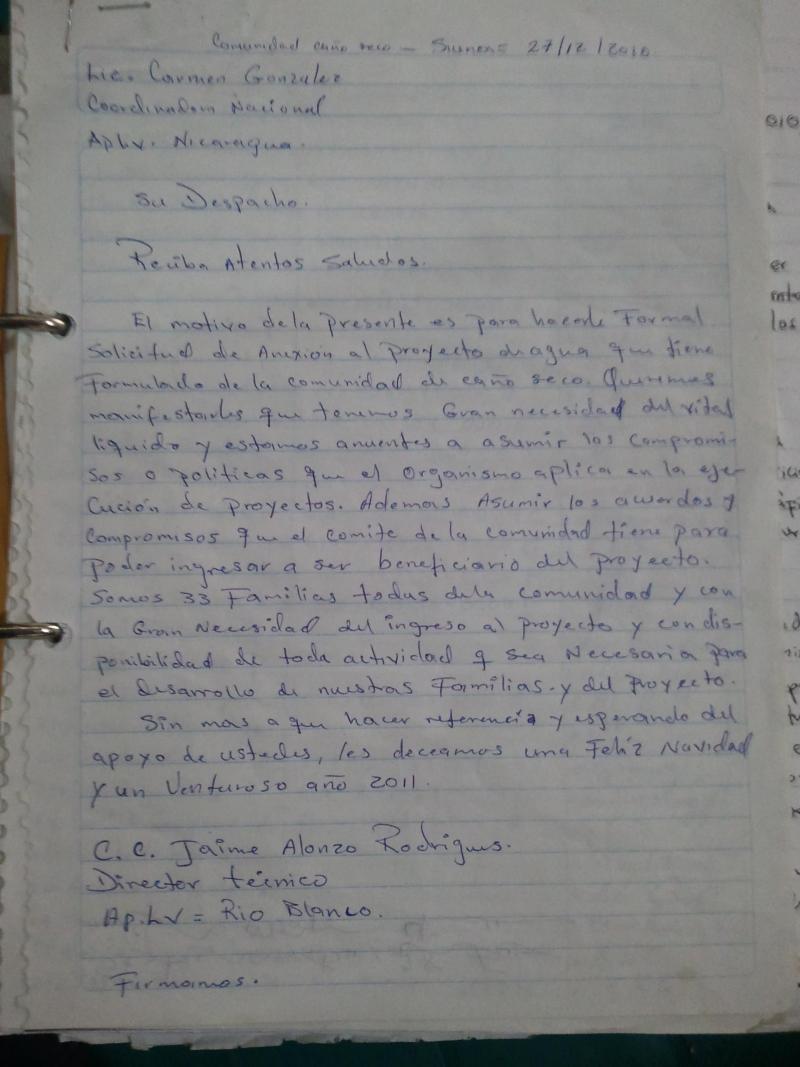 Comunidad caño seco - Siuna = 27/12/2010
Lic. Carmen Gonzalez
Coordinadora Nacional
Ap.Lv. Nicaragua.
Su Despacho.
Reciba Atentos Saludos.
El motivo dela presente es para hacerle Formal
Solicitud de Anexión al proyecto de agua que tiene
Formulado de la comunidad de caño seco. Queremos
manifestarles que tenemos Gran necesidad del vital
liquido y estamos anuentes a asumir los compromi-
sos o politicas que el organismo aplica en la eje-
cución de proyectos. Ademas Asumir los acuerdos y
compromisos que el comite de la comunidad tiene para
poder ingresar a ser beneficiario del proyecto.
Somos 33 Familias todas dela comunidad y con
la Gran Necesidad del ingreso al proyecto y con dis-
ponibilidad de toda actividad q sea Necesaria para
el desarrollo de nuestras Familias. y del Proyecto.
Sin mas a que hacer referencia y esperando del
apoyo de ustedes, les deceamos una Feliz Navidad
y un Venturoso año 2011.
C.C. Jaime Alonzo Rodrigues.
Director tecnico
Ap.Lv = Rio Blanco.
Firmamos.